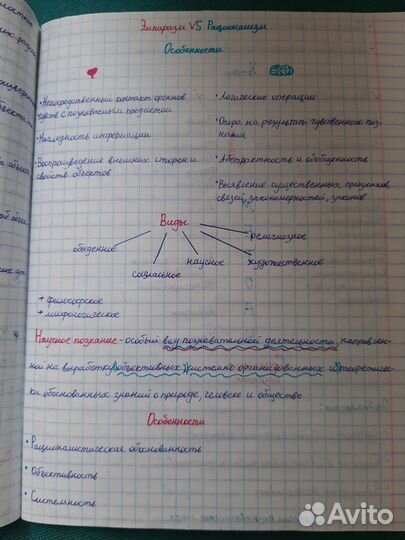 Эмпиризм VS Рационализм
Особенности
• Непосредственный контакт органов
чувств с познаваемым предметом
• Наглядность информации
• Воспроизведение внешних сторон и
свойств объектов
• Логические операции
• Опора на результаты чувственного поз-
нания
• Абстрактность и обобщенность
• Выявление существенных признаков,
связей, закономерностей, законов
Виды
обыденное
социальное
научное
художественное
религиозное
+ философское
+ мифологическое
Научное познание - особый вид познавательной деятельности, направлен-
ной на выработку 1) объективных 2) системно организованных и 3) теоретичес-
ки обоснованных знаний о природе, человеке и обществе
Особенности
• Рационалистическая обоснованность
• Объективность
• Системность
Avito